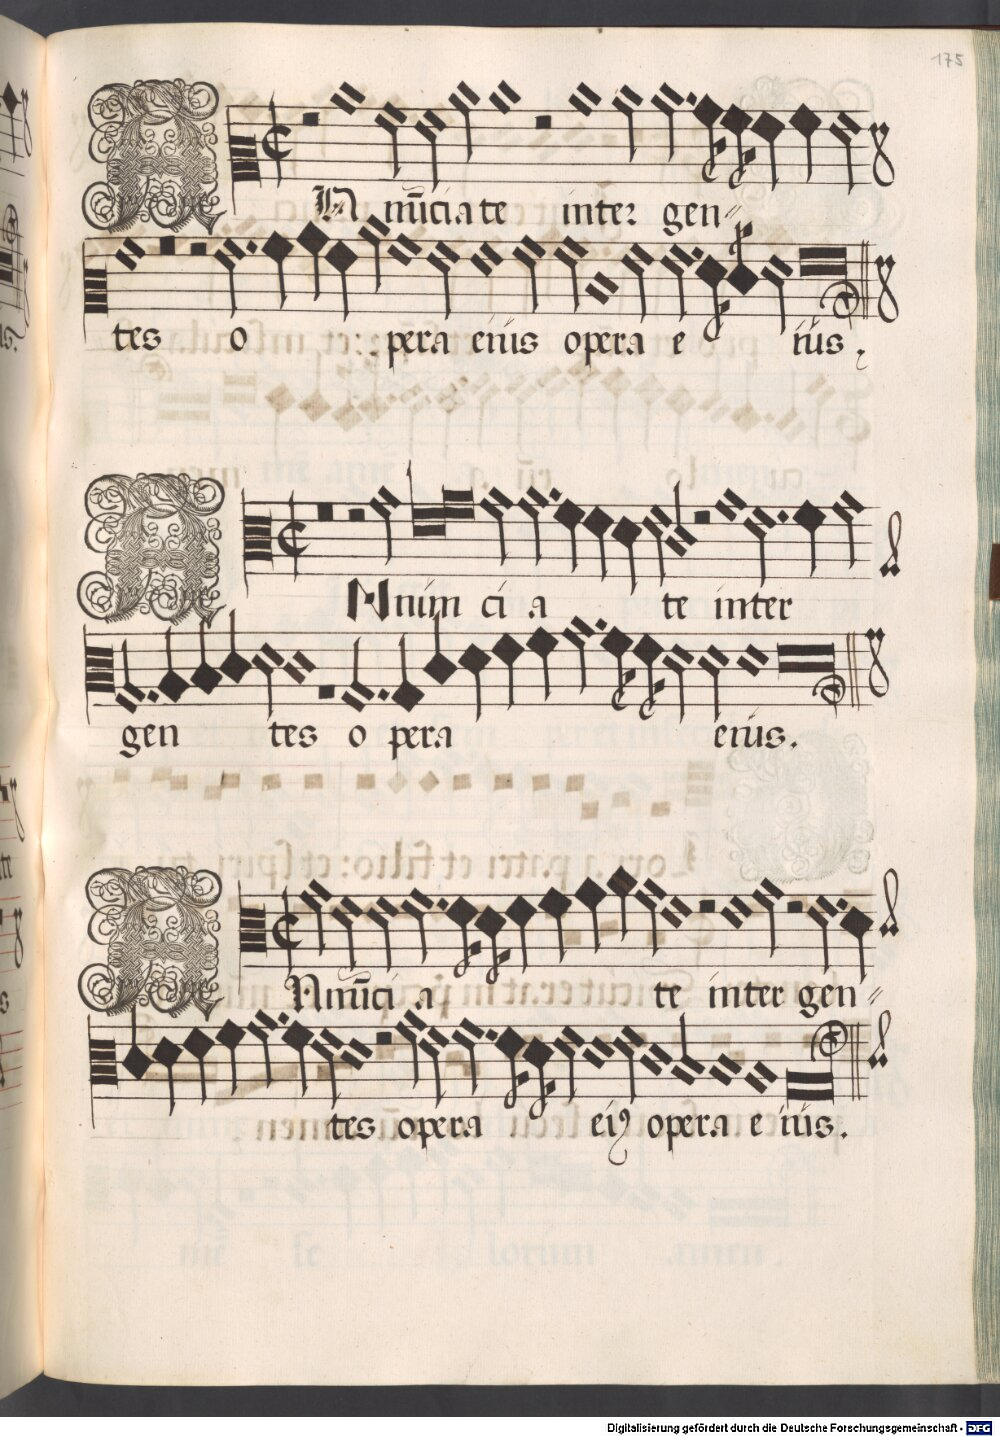 175
A Nnūciate inter gen=
tes o pera eius opera e ius.
A Nnum ci a te inter
gen tes o pera eius.
A Nnūci a te inter gen=
tes opera eiꝰ opera e ius.
Digitalisierung gefördert durch die Deutsche Forschungsgemeinschaft - DFG